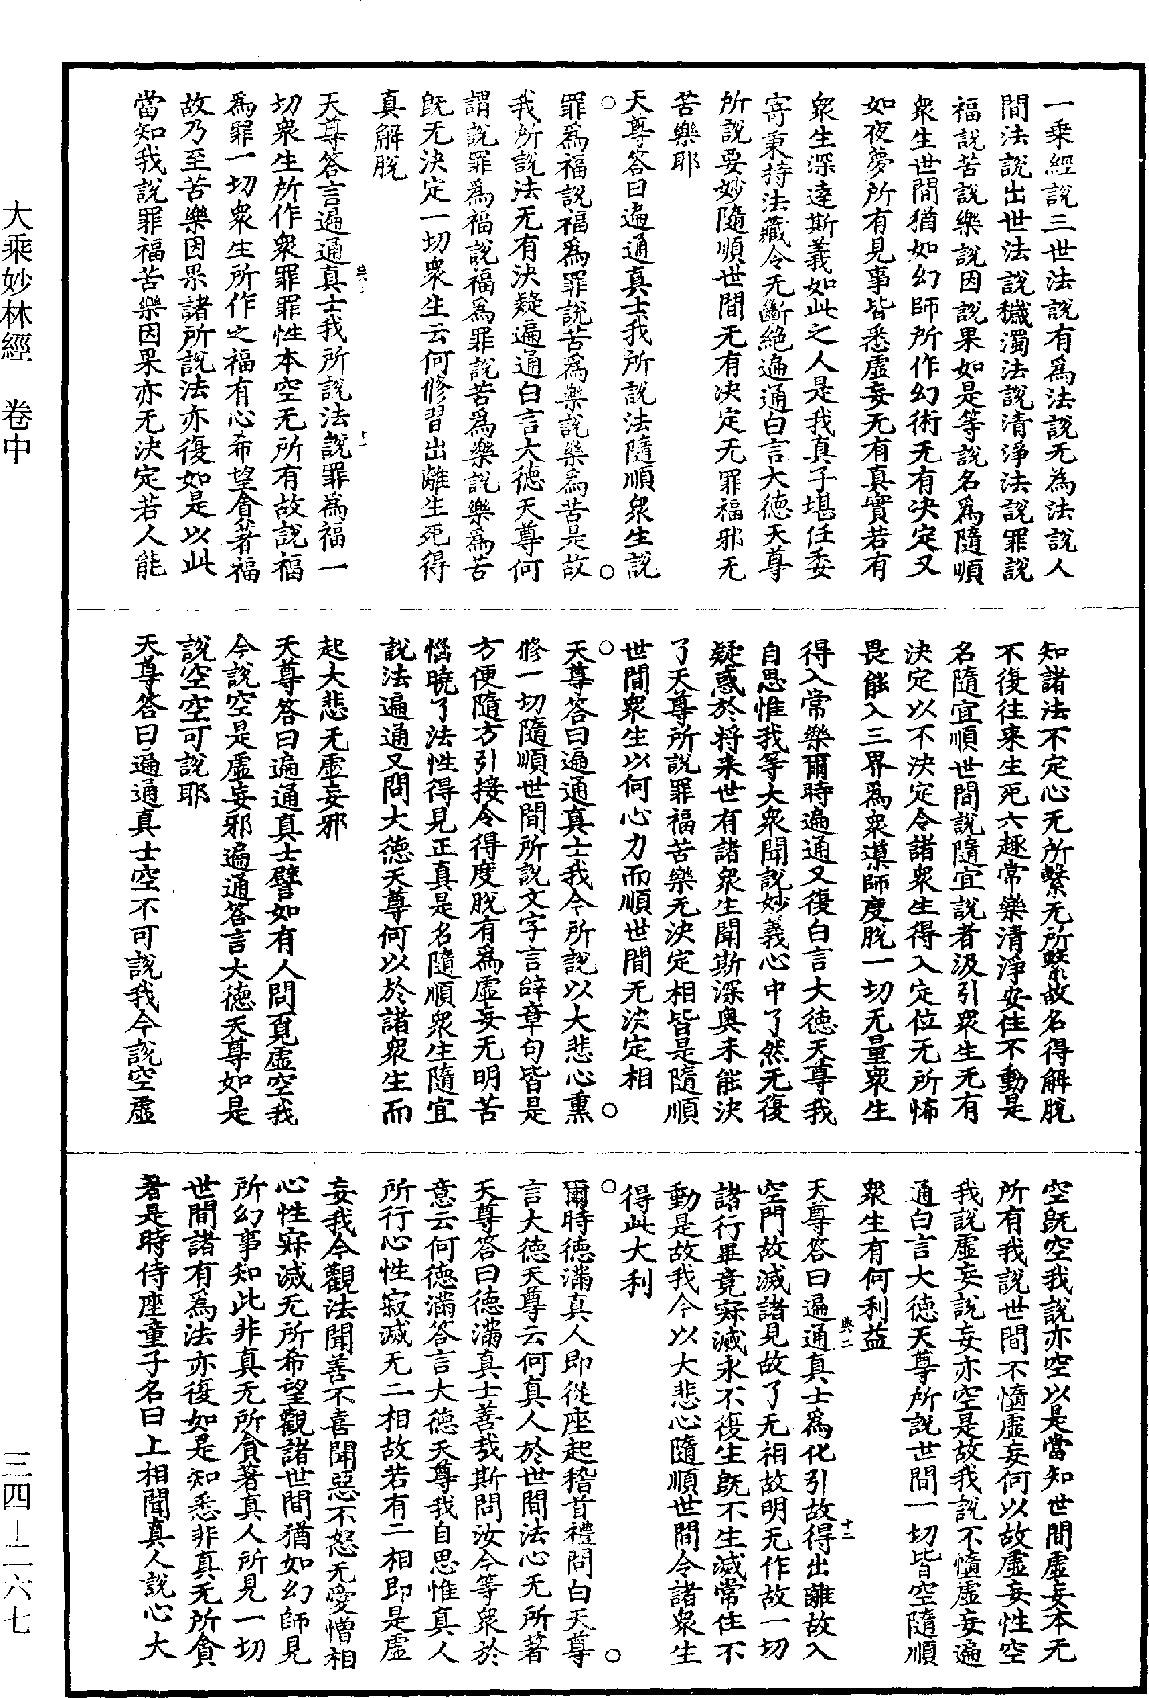 一乘經說三世法說有爲法說无為法說人
間法說出世法說穢濁法說清淨法說罪說
福說苦說樂說因說果如是等說名爲隨順
衆生世間猶如幻師所作幻術无有决定又
如夜夢所有見事皆悉虛妄无有真實若有
衆生深達斯義如此之人是我真子堪任委
寄秉持法藏令无斷絶遍通白言大德天尊
所說要妙隨順世間无有决定无罪福邪无
苦樂耶
天尊答曰遍通真士我所說法隨順衆生說
罪爲福說福爲罪說苦爲樂說樂爲苦是故
我所說法无有决疑遍通白言大德天尊何
謂說罪爲福說福爲罪說苦爲樂說樂爲苦
旣无决定一切衆生云何修習出離生死得
真解脫
天尊答言遍通真士我所說法說罪爲福一
切衆生所作衆罪罪性本空无所有故說福
爲罪一切衆生所作之福有心希望貪著福
故乃至苦樂因果諸所說法亦復如是以此
當知我說罪福苦樂因果亦无決定若人能
知諸法不定心无所繫无所繫故名得解脫
不復往來生死六趣常樂清淨安住不動是
名隨宜順世間說隨宜說者汲引衆生无有
決定以不決定令諸衆生得入定位无所怖
畏能入三界爲衆導師度脫一切无量衆生
得入常樂爾時遍通又復白言大德天尊我
自思惟我等大衆聞說妙義心中了然无復
疑惑於將來世有諸衆生聞斯深奧未能決
了天尊所說罪福苦樂无決定相皆是隨順
世間衆生以何心力而順世間无決定相
天尊答曰遍通真士我今所說以大悲心熏
修一切隨順世間所說文字言辭章句皆是
方便隨方引接令得度脫有爲虛妄无明苦
惱曉了法性得見正真是名隨順衆生隨宜
說法遍通又問大德天尊何以於諸衆生而
起大悲无虛妄邪
天尊答曰遍通真士譬如有人問覓虛空我
今說空是虛妄邪遍通答言大德天尊如是
說空空可說耶
天尊答曰遍通真士空不可說我今說空虛
空旣空我說亦空以是當知世間虛妄本无
所有我說世間不墮虛妄何以故虛妄性空
我說虛妄說妄亦空是故我說不墮虛妄遍
通白言大德天尊所說世間一切皆空隨順
衆生有何利益
天尊答曰遍通真士爲化引故得出離故入
空門故滅諸見故了无相故明无作故一切
諸行畢竟寂滅永不復生旣不生滅常住不
動是故我今以大悲心隨順世間令諸衆生
得此大利
爾時德滿真人即從座起稽首禮問白天尊
言大德天尊云何真人於世間法心无所著
天尊答曰德滿真士善哉斯問汝今等衆於
意云何德滿答言大德天尊我自思惟真人
所行心性寂滅无二相故若有二相即是虛
妄我今觀法聞善不喜聞惡不怒无愛憎相
心性寂滅无所希望觀諸世間猶如幻師見
所幻事知此非真无所貪著真人所見一切
世間諸有爲法亦復如是知悉非真无所貪
著是時侍座童子名曰上相聞真人說心大
大乘妙林經　卷中
三四—二六七